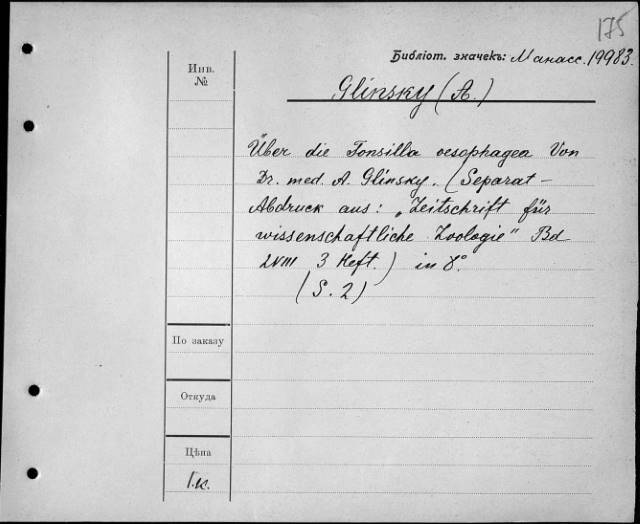 175
Библіот. значекъ: Манасс. 19983.
Инв.
№
Glinsky (A.)
Über die Tonsilla oesophagea Von
Dr. med. A. Glinsky. (Separat-
Abdruck aus: „Zeitschrift für
wissenschaftliche Zoologie" Bd
LVIII 3 Heft.) in 8°
(S. 2)
По заказу
Откуда
Цѣна
Г.к.